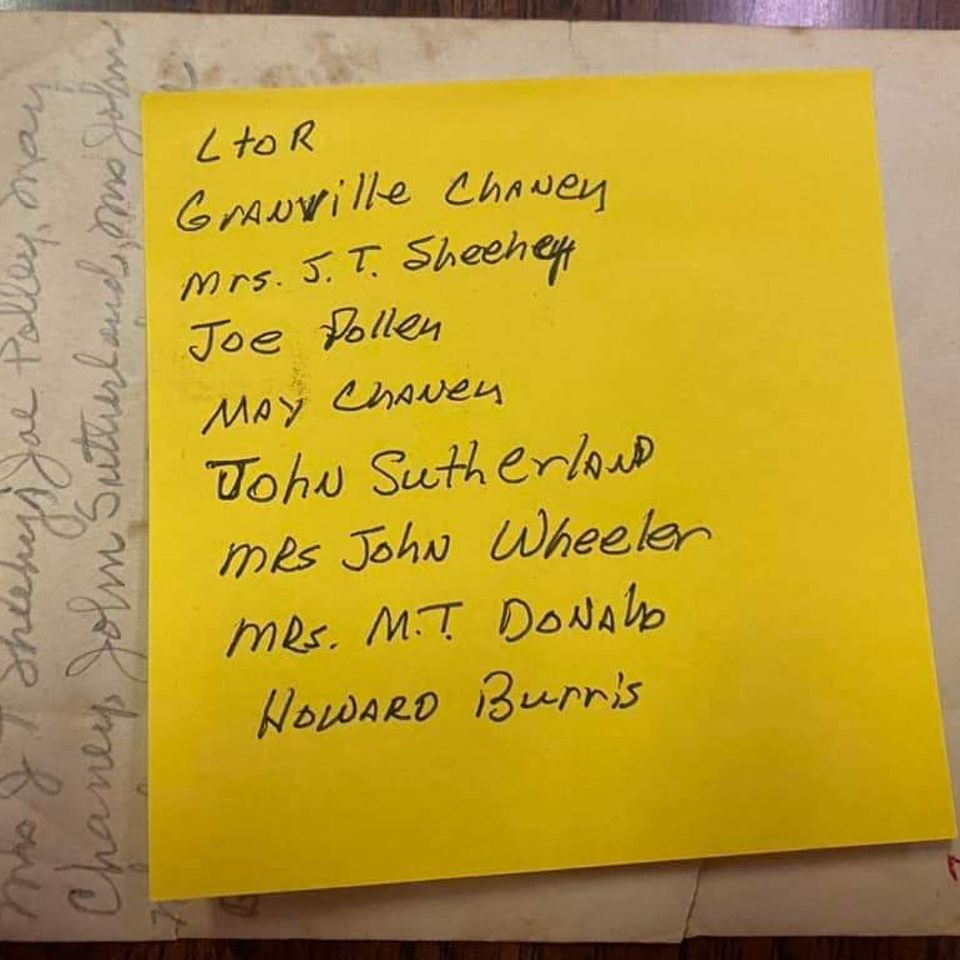 L to R
Granville Chaney
Mrs. J. T. Sheehey
Joe Polley
May Chaney
John Sutherland
Mrs John Wheeler
Mrs. M.T. Donald
Howard Burris
Mrs J T Sheehey, Joe Polley, May
Chaney, John Sutherland, Mrs John